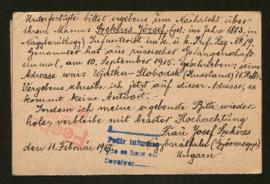 Unterfertigte bittet ergebens um Nachricht über
ihrem Mann: Szekeres József, geb. im Jahre 1883, in
Nagybaráthegy, Infanterist im k. u. k. Inf. Reg. No 19.
Genannter hat aus russischer Gefangenschaft
einmal, am 10. September 1915. Geschrieben: seine
Adresse war: Wjatka-Slobodsk (Russland)
Vergebens schreibe ich jetzt auf dieser Adresse, es
kommt keine Antwort.
Indem ich meine ergebenste Bitte wieder-
hole, verbleibe mit bester Hochachtung
Frau Josef Szekeres
den 11. Februar (Győrmegye)
Ungarn